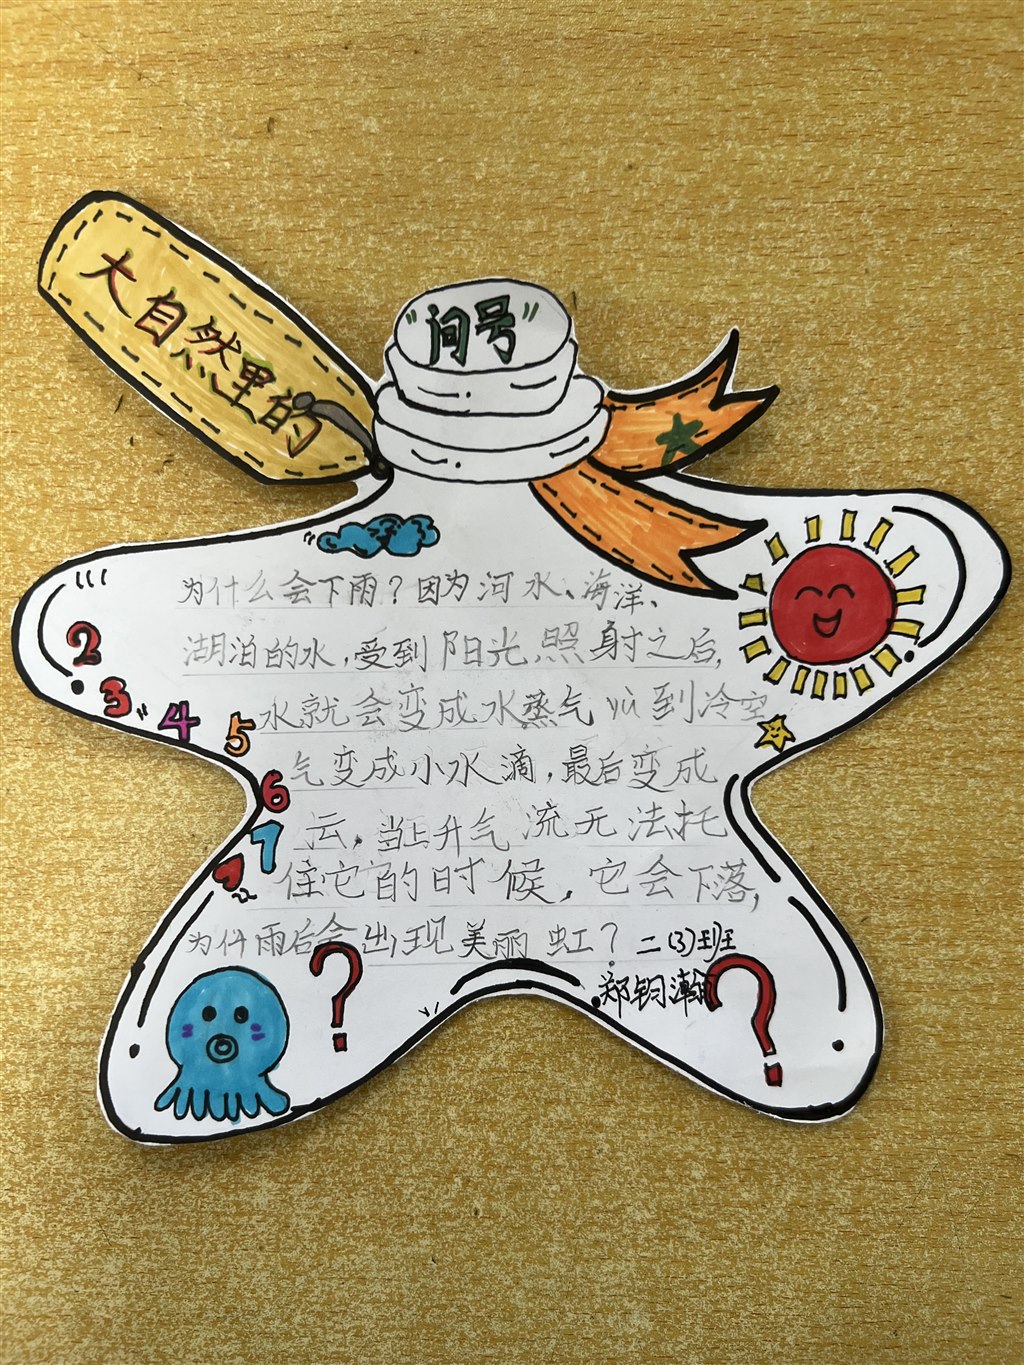 大自然里的
"问号"
为什么会下雨？因为河水、海洋、
湖泊的水，受到阳光照射之后，
水就会变成水蒸气yù到冷空
气变成小水滴，最后变成
云，当上升气流无法托
住它的时候，它会下落，
为什雨后会出现美丽虹？二(3)班
郑钧瀚
2
3
4
5
6
7
?
?